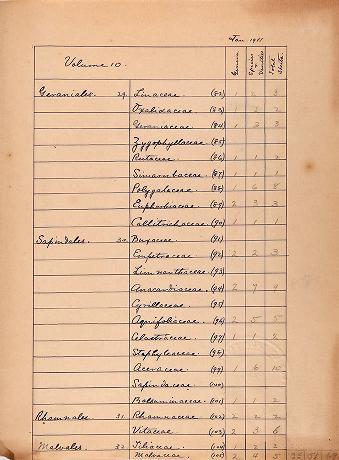 Jan. 1911
Volume 10. Genera Species Varieties Total Sheets.
Geraniales. 29. Linaceae. (82) 1 2 3
Oxalidaceae. (83) 1 2 2
Geraniaceae. (84) 1 3 3
Zygophyllaceae. (85)
Rutaceae. (86) 1 1 2
Simarubaceae. (87) 1 1 1
Polygalaceae. (88) 1 6 8
Euphorbiaceae. (89) 2 3 3
Callitrichaceae. (90) 1 1 1
Sapindales. 30. Buxaceae. (91)
Empetraceae. (92) 2 2 3
Limnanthaceae. (93)
Anacardiaceae. (94) 2 7 9
Cyrillaceae. (95)
Aquifoliaceae. (96) 2 5 5
Celastraceae. (97) 1 1 2
Staphyleaceae. (98)
Aceraceae. (99) 1 6 10
Sapindaceae. (100)
Balsaminaceae. (101) 1 1 2
Rhamnales. 31. Rhamnaceae. (102) 2 2 2
Vitaceae. (103) 2 3 6
Malvales. 32. Tiliaceae. (104) 1 2 2
Malvaceae. (105) 2 4 5